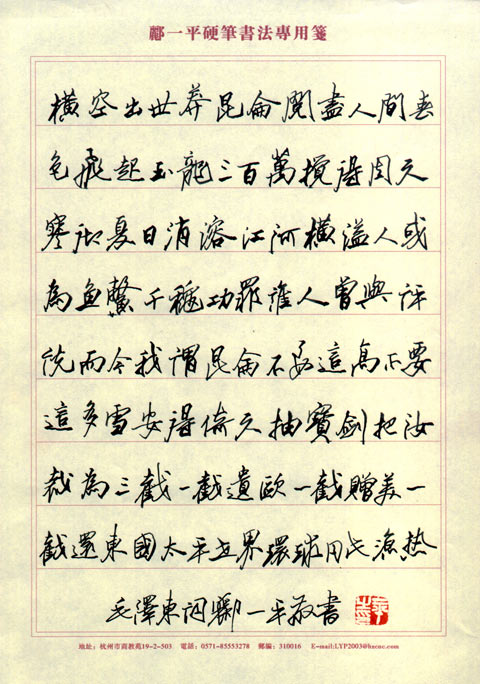 酈一平硬筆書法專用箋
橫空出世莽昆侖閱盡人間春
色飛起玉龍三百萬攪得周天
寒徹夏日消溶江河橫溢人或
為魚鱉千穐功罪誰人曾與評
說而今我謂昆侖不要這高不要
這多雪安得倚天抽寶劍把汝
裁為三截一截遺歐一截贈美一
截還東國太平世界環球同此涼热
毛澤東詞酈一平敬書
地址：杭州市商教苑19-2-503 電話：0571-85553278 郵編：310016 E-mail:LYP2003@hzcnc.com